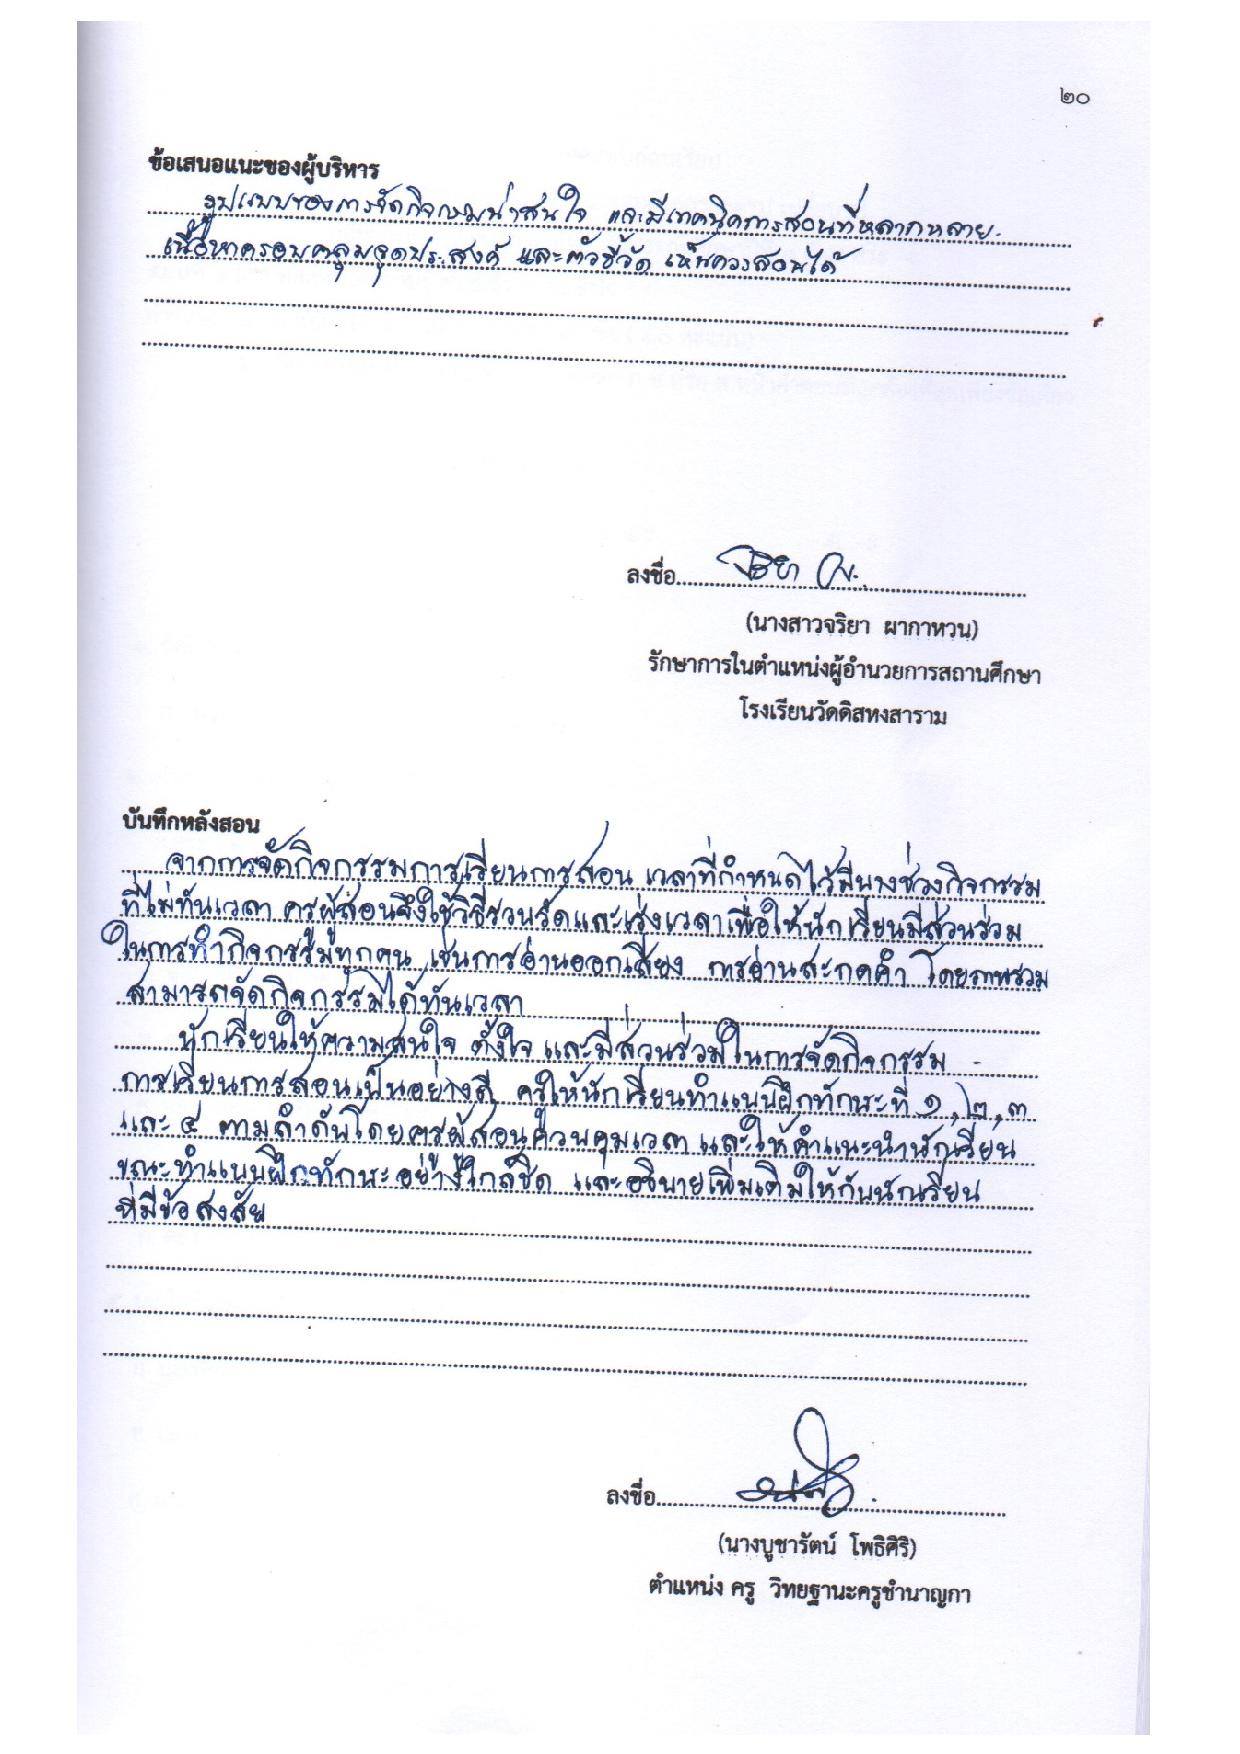 ๒๐
ข้อเสนอแนะของผู้บริหาร
รูปแบบของการจัดกิจกรรมน่าสนใจ และมีเทคนิคการสอนที่หลากหลาย
เนื้อหาครอบคลุมจุดประสงค์ และตัวชี้วัด เห็นควรสอนได้
ลงชื่อ
(นางสาวจริยา ผากาหวน)
รักษาการในตำแหน่งผู้อำนวยการสถานศึกษา
โรงเรียนวัดดิสหงสาราม
บันทึกหลังสอน
จากการจัดกิจกรรมการเรียนการสอน เวลาที่กำหนดไว้มีบางช่วงกิจกรรม
ที่ไม่ทันเวลา ครูผู้สอนจึงใช้วิธีรวบรัดและเร่งเวลาเพื่อให้นักเรียนมีส่วนร่วม
ในการทำกิจกรรมทุกคน เช่นการอ่านออกเสียง การอ่านสะกดคำ โดยภาพรวม
สามารถจัดกิจกรรมได้ทันเวลา
นักเรียนให้ความสนใจ ตั้งใจ และมีส่วนร่วมในการจัดกิจกรรม -
การเรียนการสอนเป็นอย่างดี ครูให้นักเรียนทำแบบฝึกทักษะที่ ๑,๒,๓
และ ๔ ตามลำดับโดยครูผู้สอนควบคุมเวลา และให้คำแนะนำนักเรียน
ขณะทำแบบฝึกทักษะอย่างใกล้ชิด และอธิบายเพิ่มเติมให้กับนักเรียน
ที่มีข้อสงสัย
ลงชื่อ
(นางบูชารัตน์ โพธิศิริ)
ตำแหน่ง ครู วิทยฐานะครูชำนาญกา